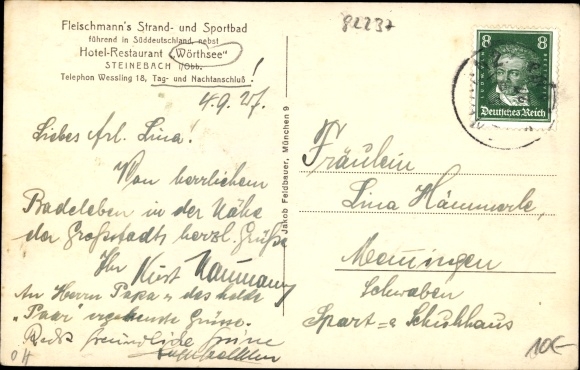 Fleischmann's Strand- und Sportbad
führend in Süddeutschland, nebst
Hotel-Restaurant „Wörthsee"
STEINEBACH i/Obb.
Telephon Wessling 18, Tag- und Nachtanschluß!
4.9.27.
Liebes Frl. Lina!
Von herrlichem
Badeleben in der Nähe
der Großstadt herzl. Grüße
Ihr Kurt Naumann
An Herrn Papa u. das holde
„Paar" ergebenste Grüsse.
Recht freundliche Grüsse
Jakob Feldbauer, München 9
82237
8 8
Deutsches Reich
Fräulein
Lina Hämmerle,
Memmingen
Schwaben
Sport- & Schuhhaus
10€-
OH